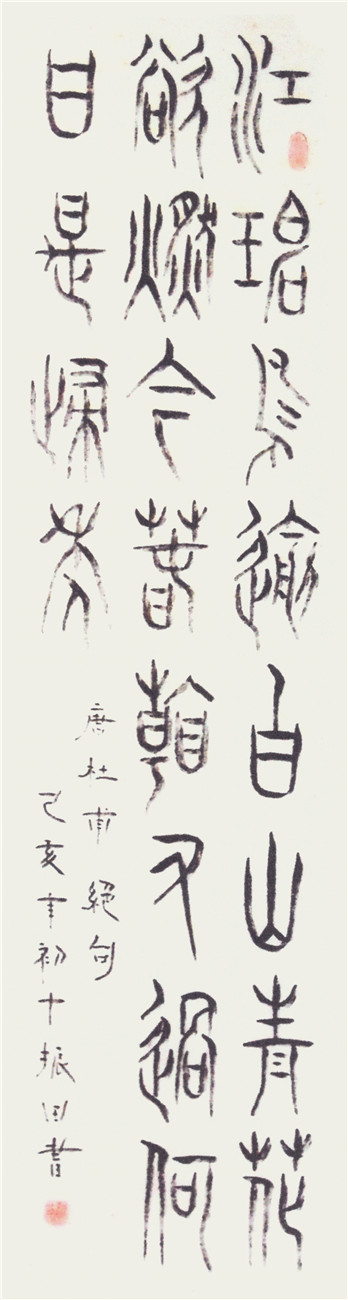 江碧鳥逾白山青花
欲燃今春看又過何
日是歸年
唐杜甫絕句
己亥年初十振田書